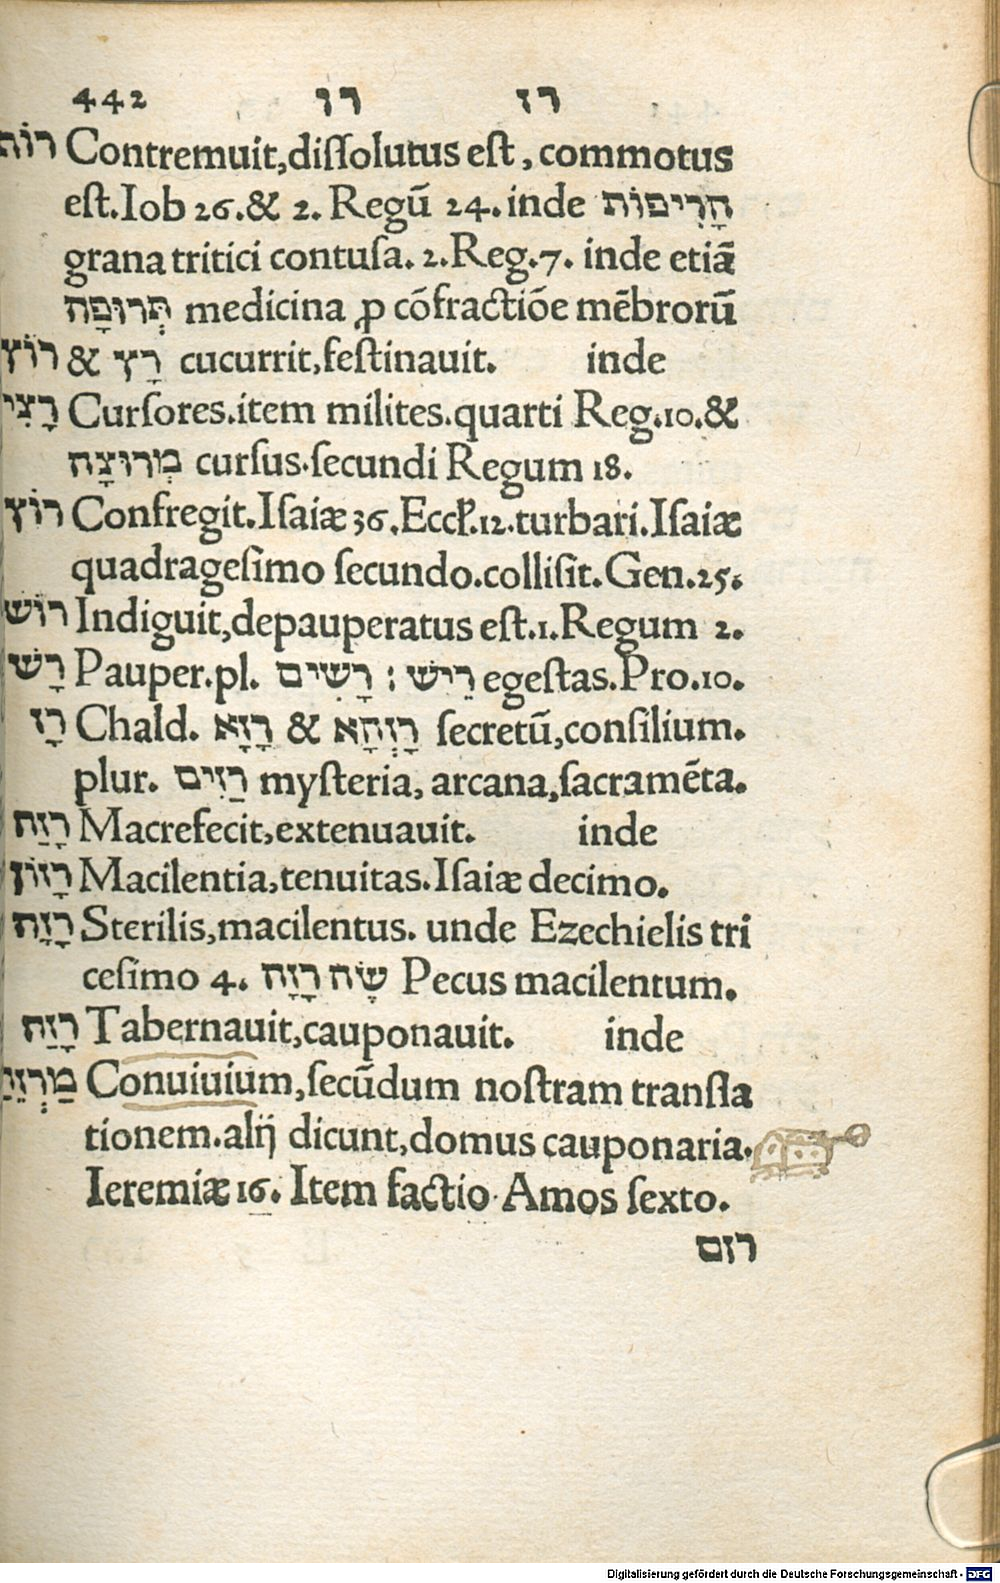 442 רו רז
רוֹה Contremuit,diſſolutus eſt, commotus
eſt.Iob 26.& 2. Regū 24.inde הָרִיפוֹת
grana tritici contuſa. 2.Reg.7. inde etiā
תְּרוּפָה medicina ꝓ cōfractiōe mēbrorū
רוֹץ & רָץ cucurrit,feſtinauit. inde
רָצִי Curſores.item milites.quarti Reg.10.&
מְרוּצָה curſus.ſecundi Regum 18.
רוֹץ Confregit.Iſaiæ 36.Eccl̃.12.turbari.Iſaiæ
quadrageſimo ſecundo.colliſit.Gen.25.
רוֹשׁ Indiguit,depauperatus eſt.1.Regum 2.
רָשׁ Pauper.pl. רָשִׁים : רֵישׁ egeſtas.Pro.10.
רָז Chald. רָזָא & רָזְהָא ſecretū,conſilium.
plur. רַזִים myſteria, arcana,ſacramēta.
רָזַה Macrefecit,extenuauit. inde
רָזוֹן Macilentia,tenuitas.Iſaiæ decimo.
רָזָה Sterilis,macilentus. unde Ezechielis tri
ceſimo 4. שֶׂה רָזָה Pecus macilentum.
רָזַח Tabernauit,cauponauit. inde
מַרְזֵי Conuiuium,ſecūdum noſtram tranſla
tionem.alij dicunt,domus cauponaria.
Ieremiæ 16. Item factio. Amos ſexto.
רזם
Digitalisierung gefördert durch die Deutsche Forschungsgemeinschaft - DFG